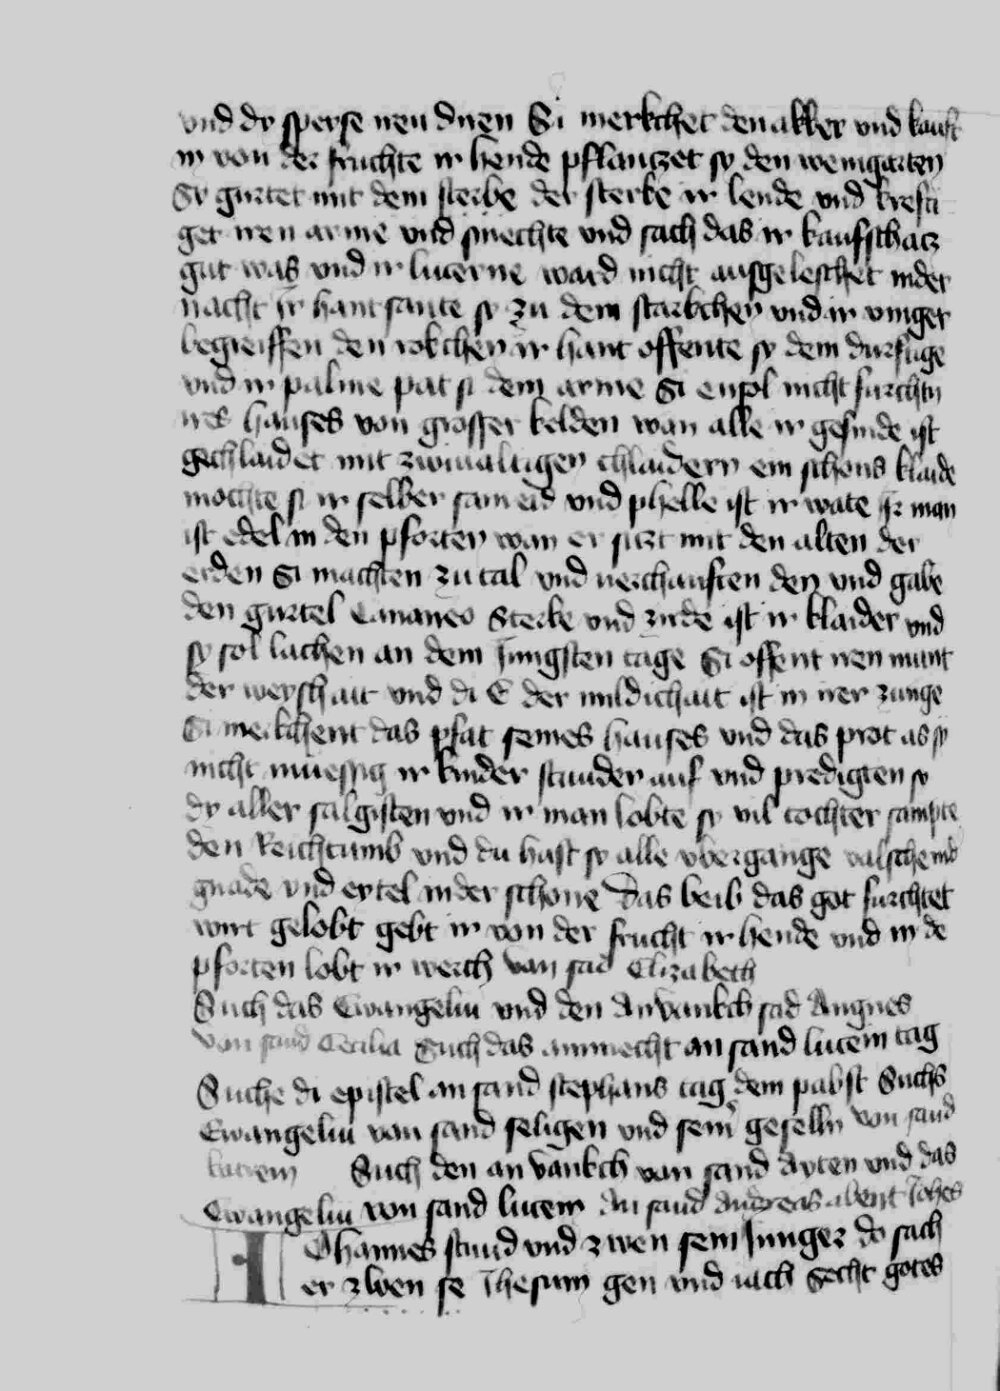 vnd dy speyse iren diren Si merkchet den akker vnd kauft
in von der fruchte ir hende pflanczet sy den weingarten
Sy gurtet mit dem sterbe der sterke ir lende vnd krefti
get iren arme vnd smechte vnd sach das ir kaufschacz
gut was vnd ir lucerne ward nicht ausgeleschet in der
nacht Ir hant sante sy zu dem starkchen vnd ir vinger
begreiffen den rokchen ir hant offente sy dem durftige
vnd ir palme pat si dem arme Si enpol nicht furchtn
ires hauses von grosser kelden wan alle ir gesinde ist
gechlaidet mit zwiualtigen chlaidern ein schons klaide
mochte si ir selber sameid vnd phelle ist ir wate Ir man
ist edel in den pforten wan er siczt mit den alten der
erden Si machten zutal vnd verchauften den vnd gabe
den gurtel Cananeo Sterke vnd zirde ist ir klaider vnd
sy sol lachen an dem Jungsten tage Si offent iren munt
der weyshait vnd di E der mildichait ist in irer zunge
Si merkchent das pfat seines hauses vnd das prot as sy
nicht muessig ir kinder stunden auf vnd predigten sy
dy aller saligisten vnd ir man lobte sy vil tochter sampte
den Reichtumb vnd du hast sy alle vbergange valsche ind
gnade vnd eytel in der schone Das beib das got furchtet
wirt gelobt gebt ir von der frucht ir hende vnd in de
pforten lobt ir werch Van sad Elizabeth
Such das Ewangeliu vnd den Anvankch sad Angnes
Van sand Cecilia Such das ammecht an sand lucein tag
Suche di epistel an sand stephans tag dem pabst Suchs
Ewangeliu van sand feligen vnd sein geselln von sand
katrein Such den an vankch van sand Ayten vnd das
Ewangeliu von sand lucein An sand Andreas abent Johes
Johannes stund vnd zwen sein Junger do sach
er zwen se Jhesum gen vnd iach Secht gotes